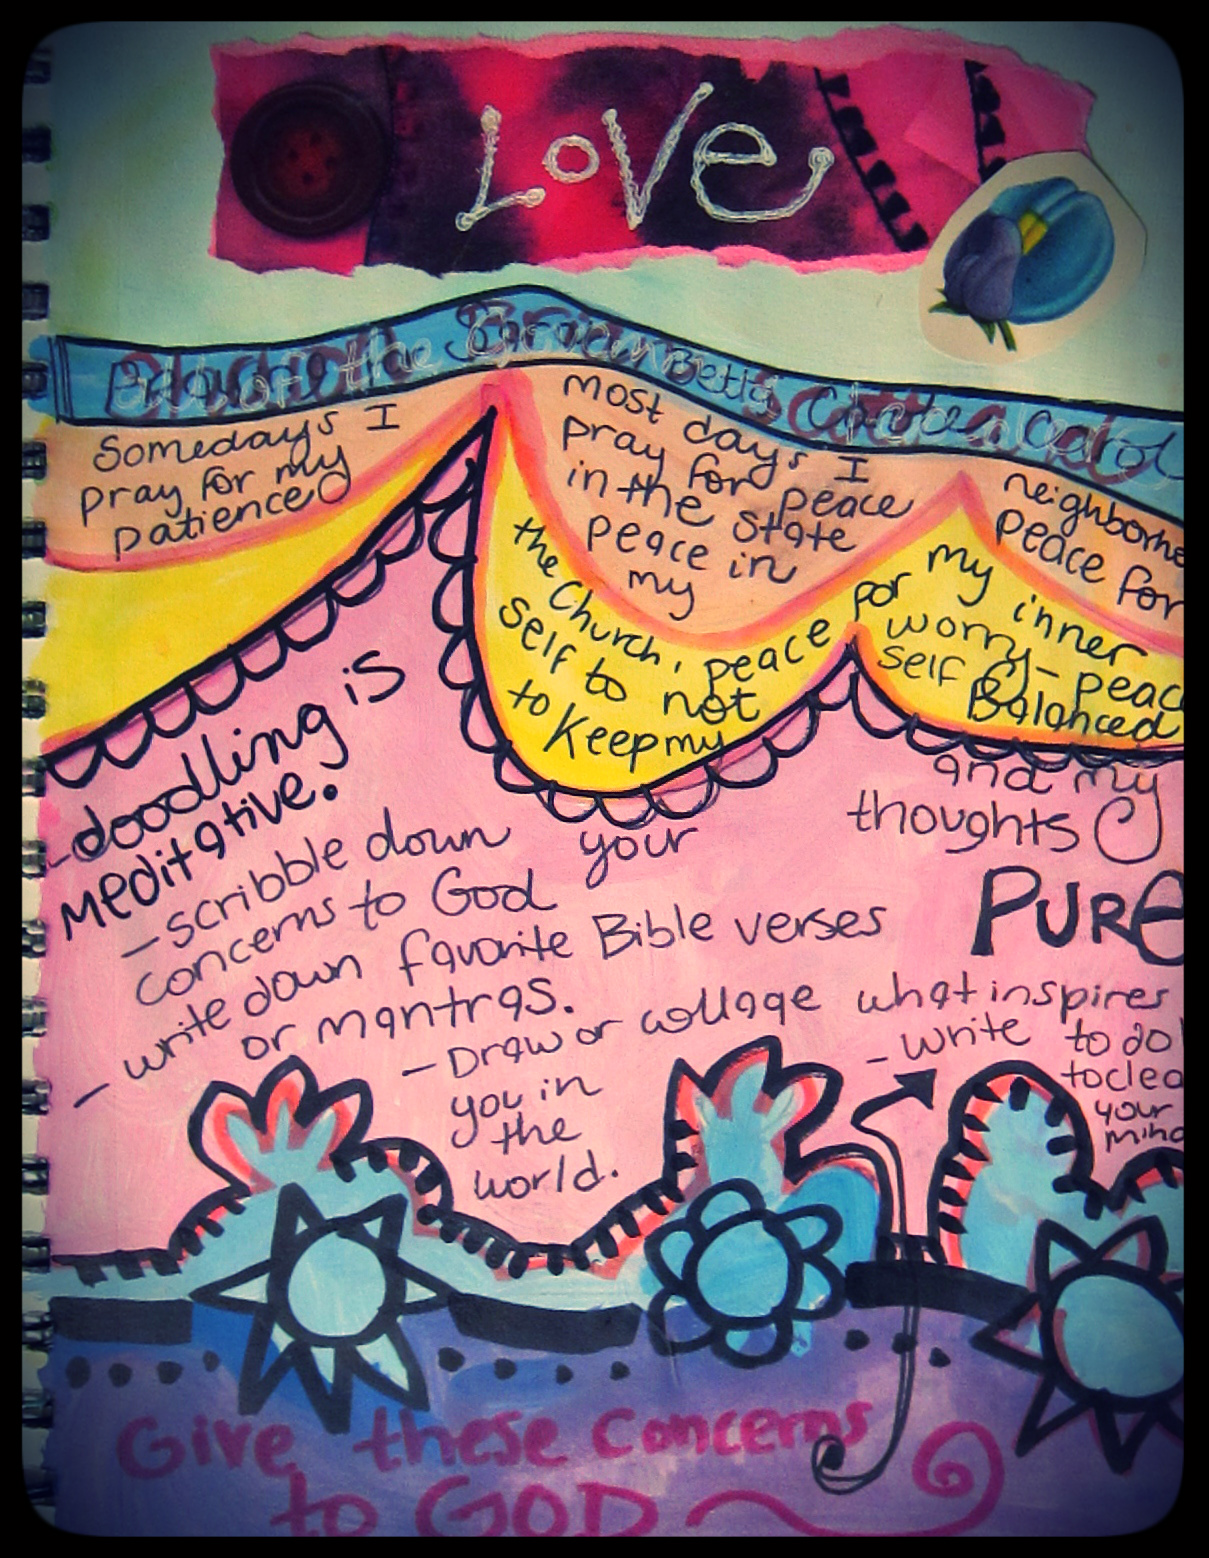 Love
Somedays I
pray for my
patience
most days I
pray for peace
in the state
peace in
my
neighborho
peace for
the Church, peace for
self to not
to keep my
my inner
worry - peac
self Balanced
and my
thoughts
PURE
-doodling is
meditative.
- scribble down your
concerns to God
- write down favorite Bible verses
or mantras.
- Draw or collage what inspires
you in
the
world.
- write to do
to clea
your
mind
Give these concerns
to GOD